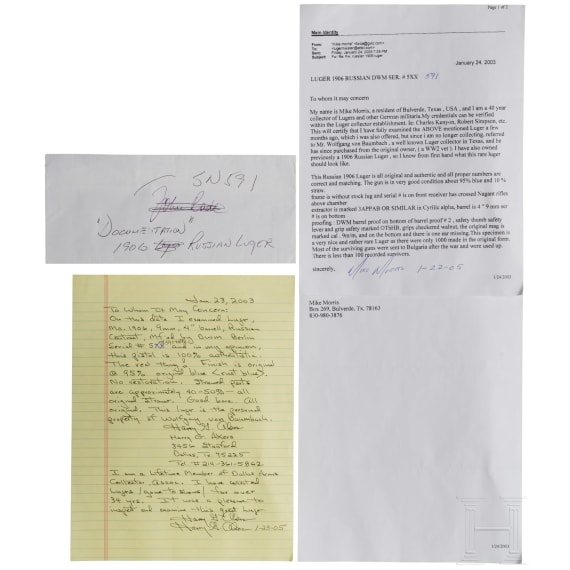 SN591
"Documentation"
1906 Russian Luger
Jan 23, 2003
To Whom It May Concern:
On this date I examined Luger,
Mo. 1906, 9mm, 4" barrell, Russian
Contract, Mf'ed by Dwm. Berlin
Serial # and in my opinion,
this pistol is 100% authentic.
The real thing! Finish is original
@ 95% original blue (rust blue).
No restoration. Strawed parts
are approximately 40-50% - all
original straw. Good bore. All
original. This Luger is the personal
property of Wolfgang von Baumbach.
Harry G. Akers
Dallas, Tx. 75225
Tel # 214-361-5862
I am a Lifetime Member of Dallas Arms
Collector Assoc. I have collected
Lugers / gone to shows / for over
34 yrs. It was a pleasure to
inspect and examine this great Luger.
1-23-05
Page 1 of 2
Main Identity
From: "mike morris"
To:
Sent: Friday, January 24, 2003 7:28 PM
Subject: Re: russian 1906 luger
January 24, 2003
LUGER 1906 RUSSIAN DWM SER. # 5XX 591
To whom it may concern
My name is Mike Morris, a resident of Bulverde, Texas , USA , and I am a 40 year
collector of Lugers and other German militaria.My credentials can be verified
within the Luger collector establishment. Ie: Charles Kenyon, Robert Simpson, etc.
This will certify that I have fully examined the ABOVE mentioned Luger a few
months ago, which i was also offered, but since i am no longer collecting, referred
to Mr. Wolfgang von Baumbach , a well known Luger collector in Texas, and he
has since purchased from the original owner, ( a WW2 vet ). I also have owned
previously a 1906 Russian Luger , so I know from first hand what this rare luger
should look like.
This Russian 1906 Luger is all original and authentic and all proper numbers are
correct and matching. The gun is in very good condition about 95% blue and 10 %
straw.
frame is without stock lug and serial # is on front receiver has crossed Nagant rifles
above chamber
extractor is marked 3APPAB OR SIMILAR in Cyrilla alpha, barrel is 4 " 9 mm ser
# is on bottom
proofing : DWM barrel proof on bottom of barrel proof # 2 , safety thumb safety
lever and grip safety marked grips checkered walnut, the original mag is
marked cal . 9m/m, and on the bottom and there is one ear missing.This specimen is
a very nice and rather rare Luger as there were only 1000 made in the original form.
Most of the surviving guns were sent to Bulgaria after the war and were used up.
There is less than 100 recorded survivors.
sincerely, Mike Morris 1-22-05
1/24/2003
Mike Morris
Box 269, Bulverde, Tx. 78163
830-980-3876
1/24/2003